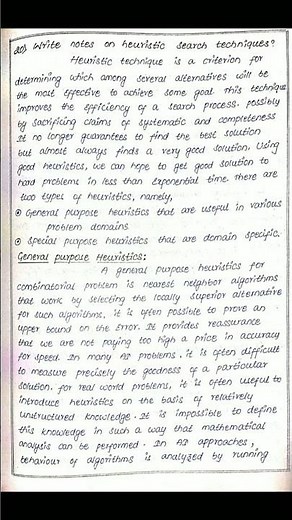 20) Write notes on heuristic search techniques?
Heuristic technique is a criterion for
determining which among several alternatives will be
the most effective to achieve some goal. This technique
improves the efficiency of a search process. possibly
by sacrificing claims of systematic and completeness
It no longer guarantees to find the best solution
but almost always finds a very good solution. Using
good heuristics, we can hope to get good solution to
hard problems in less than exponential time. There are
two types of heuristics, namely,
General purpose heuristics that are useful in various
problem domains
Special purpose heuristics that are domain specific.
General purpose Heuristics:
A general purpose heuristics for
combinatorial problem is nearest neighbor algorithms
that work by selecting the locally superior alternative
for such algorithms, it is often possible to prove an
upper bound on the error. It provides reassurance
that we are not paying too high a price in accuracy
for speed. In many AI problems, it is often difficult
to measure precisely the goodness of a particular
solution. for real world problems, it is often useful to
introduce heuristics on the basis of relatively
unstructured knowledge. It is impossible to define
this knowledge in such a way that mathematical
analysis can be performed. In AI approaches,
behaviour of algorithms is analyzed by running